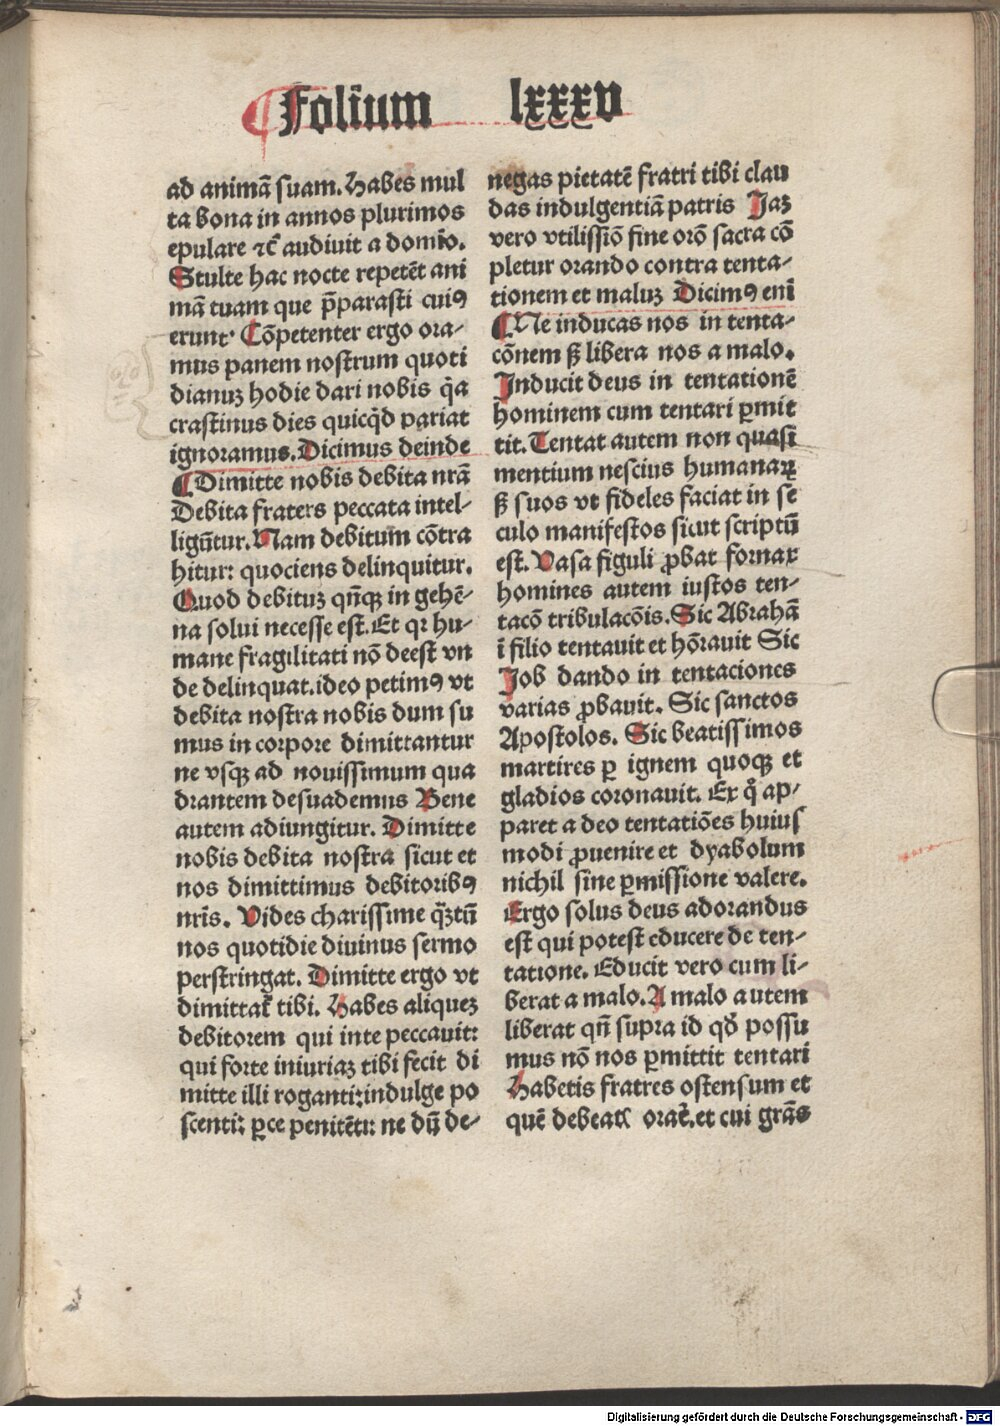 Folium lxxxv
ad animā suam. Habes mul
ta bona in annos plurimos
epulare ⁊c̄ audiuit a domīo.
Stulte hac nocte repetēt ani
mā tuam que p̄parasti cuiꝰ
erunt· Cōpetenter ergo ora-
mus panem nostrum quoti
dianuꝫ hodie dari nobis q̄a
crastinus dies quicq̄d pariat
ignoramus. Dicimus deinde
¶ Dimitte nobis debita nrā
Debita fraters peccata intel-
ligūtur. Nam debitum cōtra
hitur: quociens delinquitur.
Quod debituꝫ qn̄qꝫ in gehē-
na solui necesse est. Et qꝛ hu-
mane fragilitati nō deest vn
de delinquat. ideo petimꝰ vt
debita nostra nobis dum su
mus in corpore dimittantur
ne vsqꝫ ad nouissimum qua
drantem desuademus Bene
autem adiungitur. Dimitte
nobis debita nostra sicut et
nos dimittimus debitoribꝰ
nrīs. Vides charissime q̄ꝫtū
nos quotidie diuinus sermo
perstringat. Dimitte ergo vt
dimittat̄ tibi. Habes aliqueꝫ
debitorem qui inte peccauit:
qui forte iniuriaꝫ tibi fecit di
mitte illi roganti: indulge po
scenti: ꝑce penitēti: ne dū de-
negas pietatē fratri tibi clau
das indulgentiā patris Jaꝫ
vero vtilissiō fine orō sacra cō
pletur orando contra tenta-
tionem et maluꝫ Dicimꝰ enī
¶ Ne inducas nos in tenta-
cōnem ꝭ libera nos a malo.
Inducit deus in tentationē
hominem cum tentari ꝑmit
tit. Tentat autem non quasi
mentium nescius humanaꝝ
ꝭ suos vt fideles faciat in se
culo manifestos sicut scriptū
est. Vasa figuli ꝓbat fornax
homines autem iustos ten-
tacō tribulacōis. Sic Abrahā
ī filio tentauit et hōrauit Sic
Job dando in tentaciones
varias ꝓbauit. Sic sanctos
Apostolos. Sic beatissimos
martires ꝑ ignem quoqꝫ et
gladios coronauit. Ex qͦ ap-
paret a deo tentatiōes huius
modi ꝓuenire et dyabolum
nichil sine ꝑmissione valere.
Ergo solus deus adorandus
est qui potest educere de ten-
tatione. Educit vero cum li-
berat a malo. A malo autem
liberat qn̄ supra id qď possu
mus nō nos ꝑmittit tentari
Habetis fratres ostensum et
quē debeatꝭ orar̄e. et cui grās
Digitalisierung gefördert durch die Deutsche Forschungsgemeinschaft - DFG